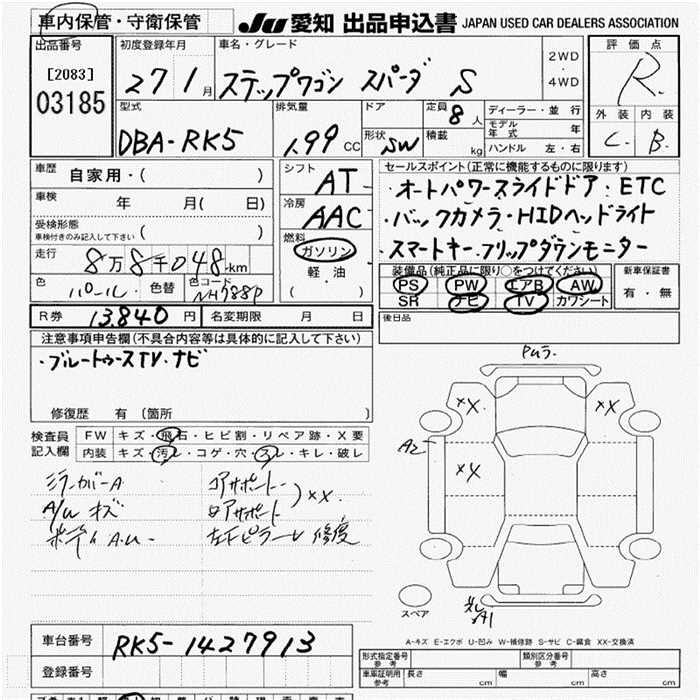 車内保管・守衛保管 JU 愛知 出品申込書 JAPAN USED CAR DEALERS ASSOCIATION
出品番号 初度登録年月 車名・グレード 2WD・4WD 評価点
[2083] 27 1月 ステップワゴン スパーダ S R
03185 外装 内装
型式 排気量 ドア 定員 8人 ディーラー・並行 C. B.
DBA-RK5 1.99 CC 形状 SW 積載 kg モデル年式 年
ハンドル 左・右
車歴 自家用・( ) シフト AT セールスポイント(正常に機能するものに限ります)
車検 年 月( 日) 冷房 AAC ・オートパワースライドドア・ETC
受検形態 ・バックカメラ・HIDヘッドライト
車検付きのみ記入して下さい ( ) 燃料 ・スマートキー・フリップダウンモニター
走行 8万8千048km ガソリン 装備品(純正品に限り○をつけてください) 新車保証書
色 パール 色替 色コード NH788P 軽・油 PS PW エアB AW 有・無
( ) SR ナビ TV カワシート
R券 13,840円 名変期限 月 日 後日品
注意事項申告欄(不具合内容等は具体的に記入して下さい)
・ブルートゥースTV・ナビ
修復歴 有 (箇所
検査員 FW キズ・飛石・ヒビ割・リペア跡・X要
記入欄 内装 キズ・汚レ・コゲ・穴・スレ・キレ・破レ
ミラーカバーA コアサポート
A/W キズ ロアサポート ) XX
ボディ A.U 修復
PMラ.
XX XX
A2
XX
スペア A1
A-キズ E-エクボ U-凹み W-補修跡 S-サビ C-腐食 XX-交換済
車台番号 RK5-1427913
登録番号
形式指定番号 参考 類別区分番号 参考
車庫証明用 参考 長さ cm 幅 cm 高さ cm